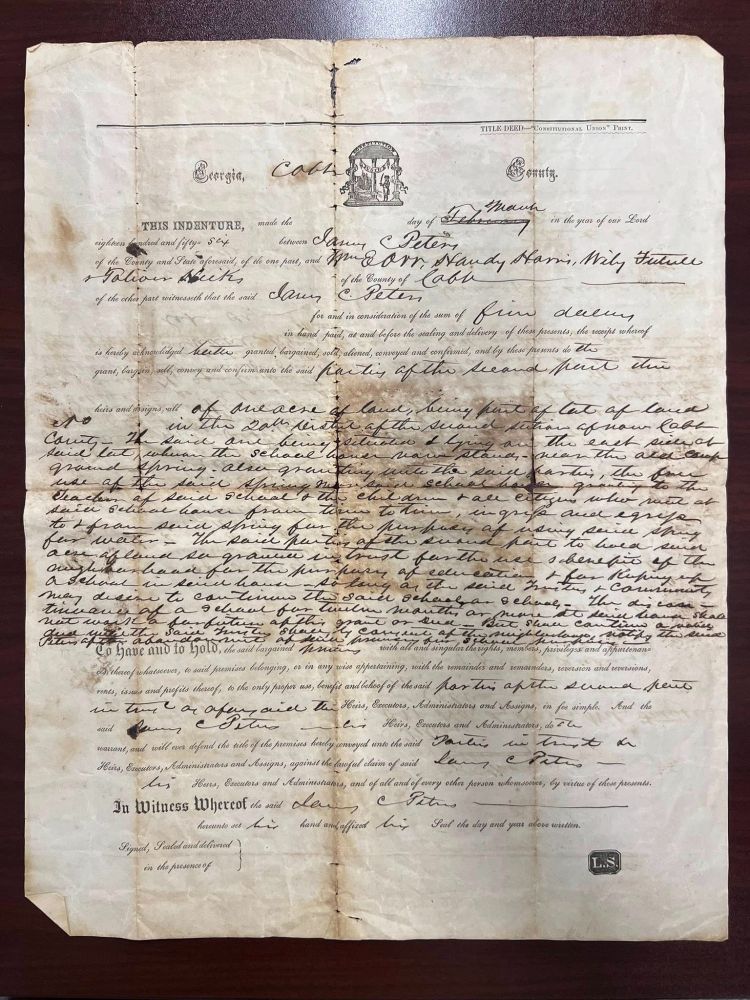 TITLE DEED—"CONSTITUTIONAL UNION" PRINT.
Georgia, Cobb County.
CONSTITUTION
THIS INDENTURE, made the day of February March in the year of our Lord
eighteen hundred and fifty-six between James C Peters
of the County and State aforesaid, of the one part, and Wm E Orr, Handy Harris, Wiley
& of the County of Cobb
of the other part witnesseth that the said James C Peters
for and in consideration of the sum of five dollars
in hand paid, at and before the sealing and delivery of these presents, the receipt whereof
is hereby acknowledged hath granted, bargained, sold, aliened, conveyed and confirmed, and by these presents do th
grant, bargain, sell, convey and confirm unto the said parties of the second part their
heirs and assigns, all of one acre of land, being part of lot of land
No in the 20th District of the second section of now Cobb
County - The said one being situated & lying on the east side of
said lot, where the school house now stands - near the old camp
ground spring - also granting unto the said parties, the free
use of the said spring near said school house granting to the
teachers of said school & the children & all citizens who meet at
said school house from time to time, ingress and egress
to & from said spring for the purpose of using said spring
for water - The said parties of the second part to hold said
acre of land so granted in trust for the use & benefit of the
neighborhood for the purposes of education & for keeping up
a school in said house - so long as the said Trustees & Community
may desire to continue the said school or schools - The discon-
tinuance of a school for twelve months or more at said house shall
not work a forfeiture of this grant or deed - But shall continue
until the said Trustees shall by consent of the neighborhood notify the said
Peters of the abandonment of said premises for school purposes
To Have and to Hold, the said bargained premises with all and singular the rights, members, privileges and appurtenan-
ces thereof whatsoever, to said premises belonging, or in any wise appertaining, with the remainder and remainders, reversion and reversions,
rents, issues and profits thereof, to the only proper use, benefit and behoof of the said parties of the second part
in trust as aforesaid the Heirs, Executors, Administrators and Assigns, in fee simple. And the
said James C Peters his Heirs, Executors and Administrators, do th
warrant, and will ever defend the title of the premises hereby conveyed unto the said Parties in trust &c
Heirs, Executors, Administrators and Assigns, against the lawful claim of said James C Peters
his Heirs, Executors and Administrators, and of all and of every other person whomsoever, by virtue of these presents.
In Witness Whereof the said James C Peters
hereunto set his hand and affixed his Seal the day and year above written.
Signed, Sealed and delivered
in the presence of
L.S.